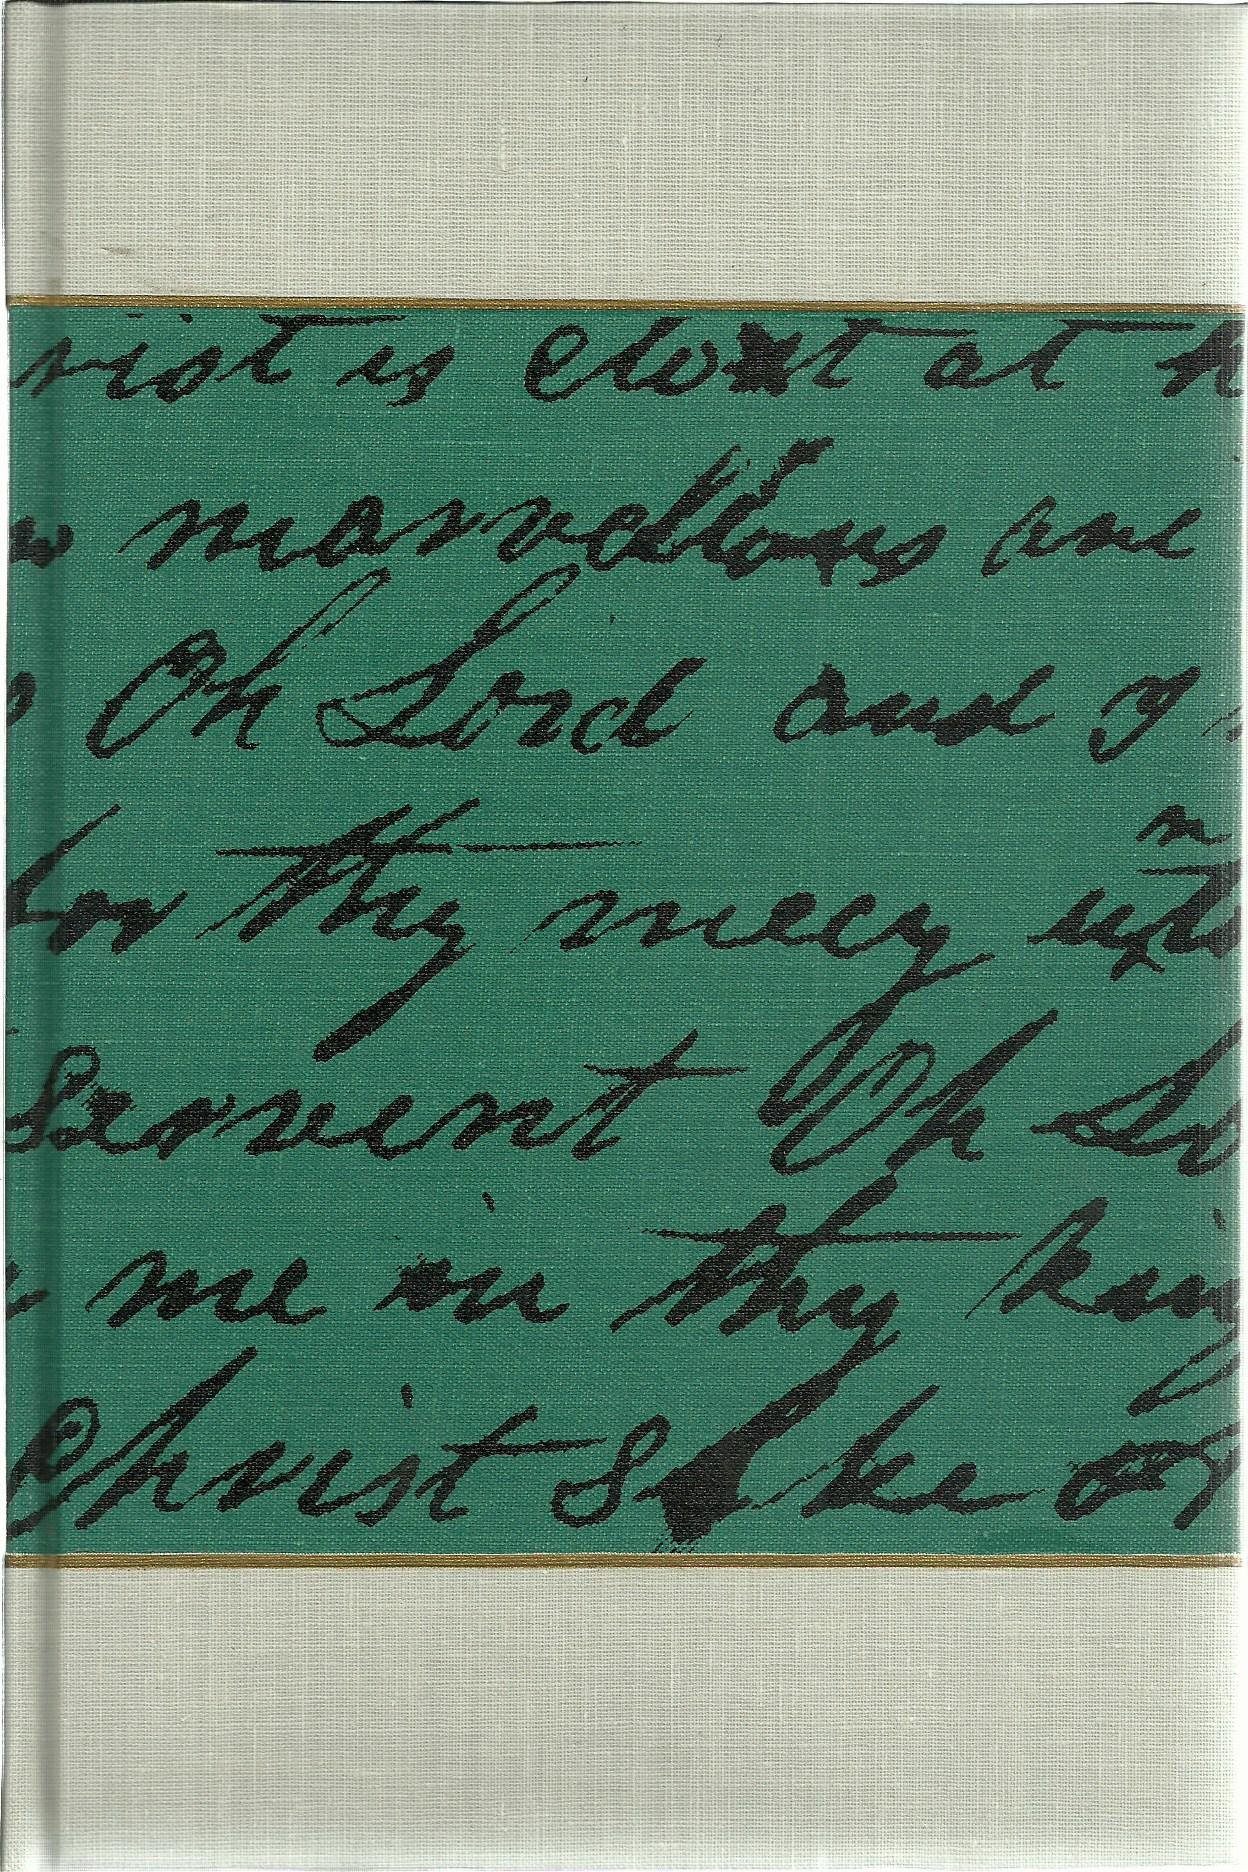 rist is clost at h
marvellous are
Oh Lord and I
for thy mercy unto
Servent Oh Lo
me in thy king
Christ sake of